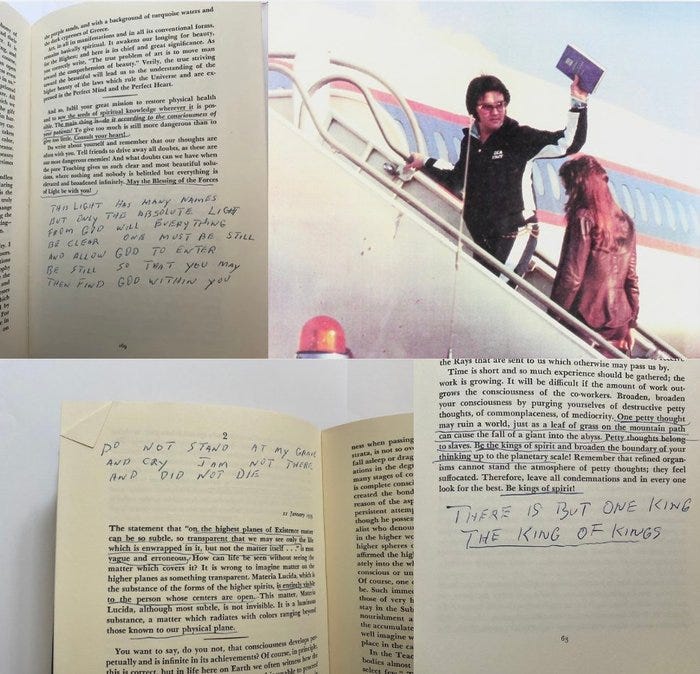 the purple sands, and with a background of turquoise waters and
the dark cypresses of Greece.
Art, in all its manifestations and in all its conventional forms,
basically spiritual. It awakens our longing for beauty,
for the Highest; and here is its chief and great significance. As
you correctly write, "The true problem of art is to move man
toward the comprehension of beauty." Verily, the true striving
toward the beautiful will lead us to the understanding of the
higher beauty of the laws which rule the Universe and are ex-
pressed in the Perfect Mind and the Perfect Heart.
And so, fulfil your great mission to restore physical health
and to sow the seeds of spiritual knowledge wherever it is pos-
sible. The main thing is—do it according to the consciousness of
your patients! To give too much is still more dangerous than to
give too little. Consult your heart.
Do write about yourself and remember that our thoughts are
often with you. Tell friends to drive away all doubts, as these are
our most dangerous enemies! And what doubts can we have when
the pure Teaching gives us such clear and most beautiful solu-
tions, where nothing and nobody is belittled but everything is
elevated and broadened infinitely. May the Blessing of the Forces
of Light be with you!
THIS LIGHT HAS MANY NAMES
BUT ONLY THE ABSOLUTE LIGHT
FROM GOD WILL EVERYTHING
BE CLEAR ONE MUST BE STILL
AND ALLOW GOD TO ENTER
BE STILL SO THAT YOU MAY
THEN FIND GOD WITHIN YOU
169
STAFF
2
DO NOT STAND AT MY GRAVE
AND CRY I AM NOT THERE
AND DID NOT DIE
11 January 1935
The statement that "on the highest planes of Existence matter
can be so subtle, so transparent that we may see only the life
which is enwrapped in it, but not the matter itself . . ." is most
vague and erroneous. How can life be seen without seeing the
matter which covers it? It is wrong to imagine matter on the
higher planes as something transparent. Materia Lucida, which is
the substance of the forms of the higher spirits, is entirely visible
to the person whose centers are open. This matter, Materia
Lucida, although most subtle, is not invisible. It is a luminous
substance, a matter which radiates with colors ranging beyond
those known to our physical plane.
You want to say, do you not, that consciousness develops per-
petually and is infinite in its achievements? Of course, in principle,
this is correct, but in life here on Earth we often witness how the
ness when passing
strata, is not so ove
fall asleep or drag
ations in the degr
many stages of co
is complete consci
created the bond
reason of the asp
persistent attemp
though he posses
alist who denou
in the higher w
higher spheres o
affirmed the hig
ately into the wh
conscious or un
Of course, one c
be. Such imme
those of very h
stay in the Sub
nourishment a
the accumulate
well imagine w
place in the ca
In the Teac
bodies almost
select few."
the Rays that are sent to us which otherwise may pass us by.
Time is short and so much experience should be gathered; the
work is growing. It will be difficult if the amount of work out-
grows the consciousness of the co-workers. Broaden, broaden
your consciousness by purging yourselves of destructive petty
thoughts, of commonplaceness, of mediocrity. One petty thought
may ruin a world, just as a leaf of grass on the mountain path
can cause the fall of a giant into the abyss. Petty thoughts belong
to slaves. Be the kings of spirit and broaden the boundary of your
thinking up to the planetary scale! Remember that refined organ-
isms cannot stand the atmosphere of petty thoughts; they feel
suffocated. Therefore, leave all condemnations and in every one
look for the best. Be kings of spirit!
THERE IS BUT ONE KING
THE KING OF KINGS
63